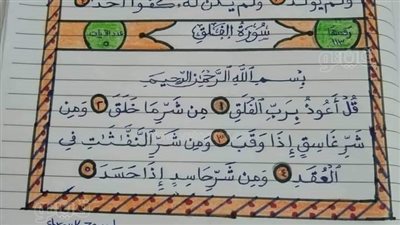 ولم يولد ٣ ولم يكن له كفوا أحد
رقمها ١١٣ سُورَةُ الفَلَقِ عدد الآيات ٥
بِسْمِ اللَّهِ الرَّحْمَٰنِ الرَّحِيمِ
قُلْ أَعُوذُ بِرَبِّ الْفَلَقِ ١ مِن شَرِّ مَا خَلَقَ ٢ وَمِن
شَرِّ غَاسِقٍ إِذَا وَقَبَ ٣ وَمِن شَرِّ النَّفَّاثَاتِ فِي
الْعُقَدِ ٤ وَمِن شَرِّ حَاسِدٍ إِذَا حَسَدَ ٥